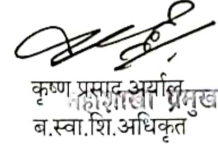 कृष्ण प्रसाद अर्याल
महाशाखा प्रमुख
ब.स्वा.शि.अधिकृत